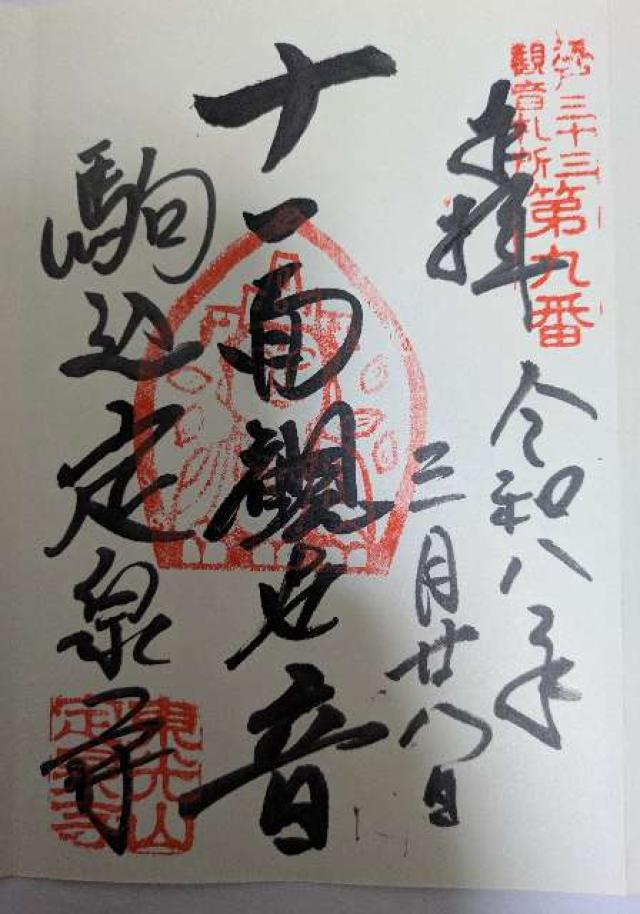 江戸三十三
観音札所
第九番
奉拝
令和八年
三月廿八日
十一面観世音
駒込定泉寺
東光山
定泉寺